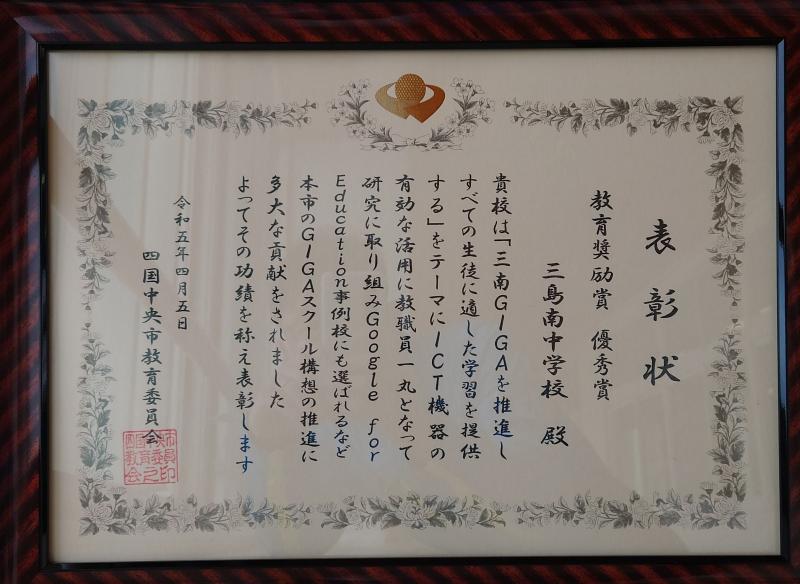 表彰状
教育奨励賞 優秀賞
三島南中学校 殿
貴校は「三南GIGAを推進し
すべての生徒に適した学習を提供
する」をテーマにICT機器の
有効な活用に教職員一丸となって
研究に取り組みGoogle for
Education事例校にも選ばれるなど
本市のGIGAスクール構想の推進に
多大な貢献をされました
よってその功績を称え表彰します
令和五年四月五日
四国中央市教育委員会